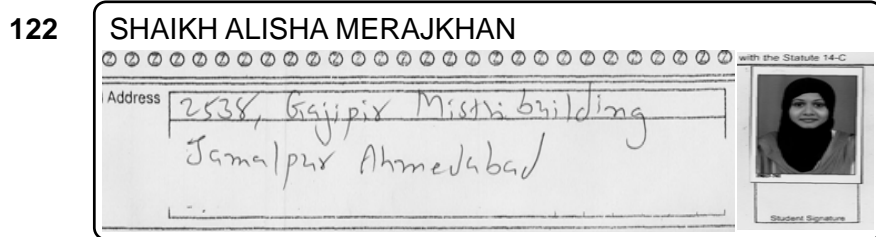 122 SHAIKH ALISHA MERAJKHAN
with the Statute 14-C
Address 2538, Gajipir Misthi building
Jamalpur Ahmedabad
Student Signature